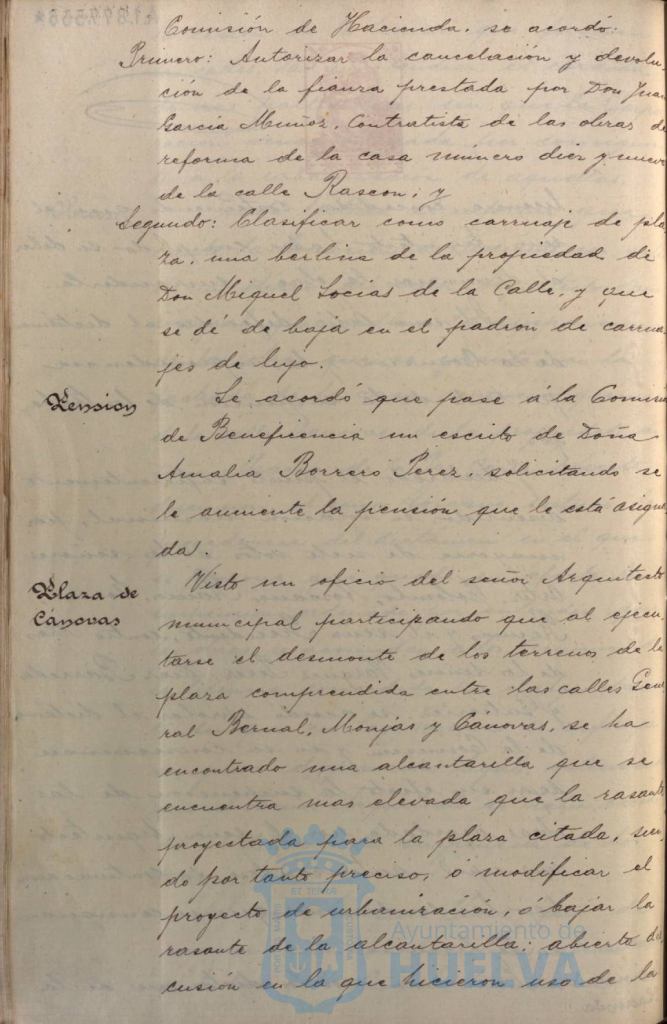 Comisión de Hacienda, se acordó:
Primero: Autorizar la cancelación y devolu
ción de la fianza prestada por Don Juan
García Muñoz, Contratista de las obras de
reforma de la casa número diez y nueve
de la calle Rascon; y
Segundo: Clasificar como carruaje de pla
za, una berlina de la propiedad de
Don Miguel Socias de la Calle, y que
se dé de baja en el padrón de carrua
jes de lujo.
Pension
Se acordó que pase á la Comisión
de Beneficencia un escrito de Doña
Amalia Borrero Perez, solicitando se
le aumente la pensión que le está asigna
da.
Plaza de
Cánovas
Visto un oficio del señor Arquitecto
municipal participando que al ejecu
tarse el desmonte de los terrenos de la
plaza comprendida entre las calles Gene
ral Bernal, Monjas y Cánovas, se ha
encontrado una alcantarilla que se
encuentra mas elevada que la rasante
proyectada para la plaza citada, sien
do por tanto preciso, ó modificar el
proyecto de urbanización, ó bajar la
rasante de la alcantarilla; abierta dis
cusión en la que hicieron uso de la
Ayuntamiento de
HUELVA